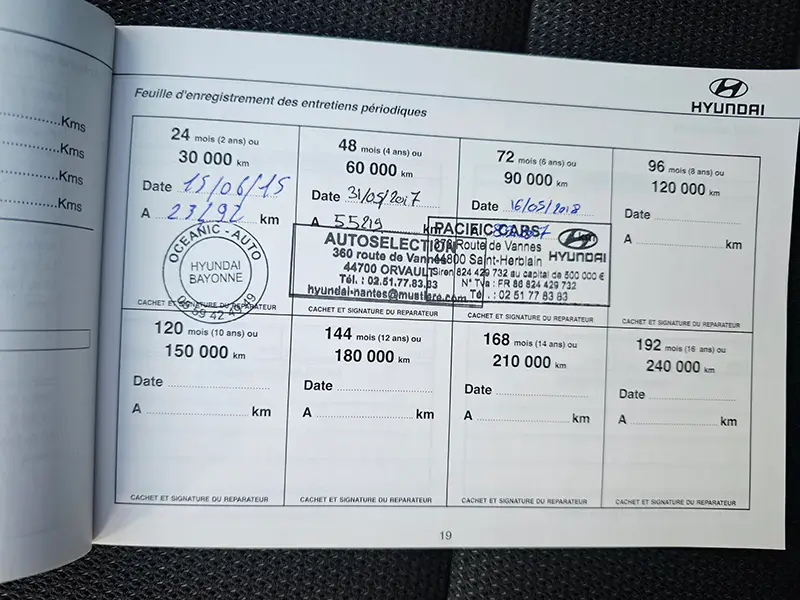 Kms
Kms
Kms
Kms
HYUNDAI
Feuille d'enregistrement des entretiens périodiques
24 mois (2 ans) ou
30 000 km
Date 15/06/15
A 23292 km
OCEANIC - AUTO
HYUNDAI
BAYONNE
CACHET ET SIGNATURE DU REPARATEUR
48 mois (4 ans) ou
60 000 km
Date 31/05/2017
A 55219 km
AUTOSELECTION
360 route de Vannes
44700 ORVAULT
Tél. : 02.51.77.83.83
hyundai-nantes@mustiere.com
CACHET ET SIGNATURE DU REPARATEUR
72 mois (6 ans) ou
90 000 km
Date 16/05/2018
PACIFIC CARS
HYUNDAI
Route de Vannes
44800 Saint-Herblain
Siren 824 429 732 au capital de 500 000 €
N° Tva : FR 88 824 429 732
Tél. : 02 51 77 83 83
CACHET ET SIGNATURE DU REPARATEUR
96 mois (8 ans) ou
120 000 km
Date
A km
CACHET ET SIGNATURE DU REPARATEUR
120 mois (10 ans) ou
150 000 km
Date
A km
CACHET ET SIGNATURE DU REPARATEUR
144 mois (12 ans) ou
180 000 km
Date
A km
CACHET ET SIGNATURE DU REPARATEUR
168 mois (14 ans) ou
210 000 km
Date
A km
CACHET ET SIGNATURE DU REPARATEUR
192 mois (16 ans) ou
240 000 km
Date
A km
CACHET ET SIGNATURE DU REPARATEUR
19